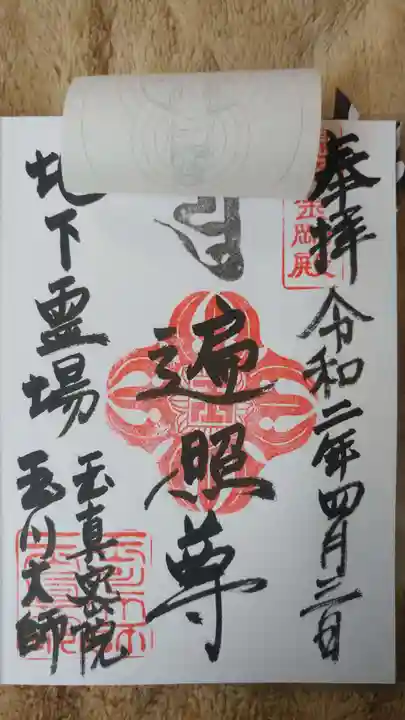 奉拝
令和二年四月三日
遍照尊
地下霊場
玉真密院
玉川大師